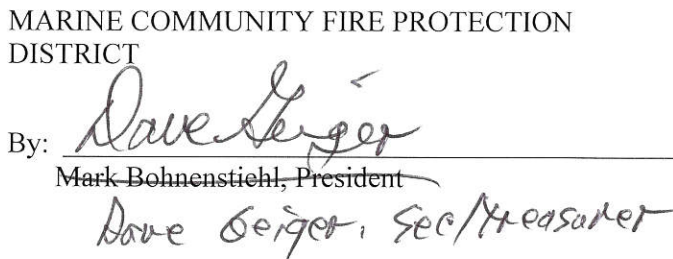 MARINE COMMUNITY FIRE PROTECTION
DISTRICT
Dave Geiger
By:
Mark Bohnenstiehl, President
Dave Geiger, Sec/treasurer